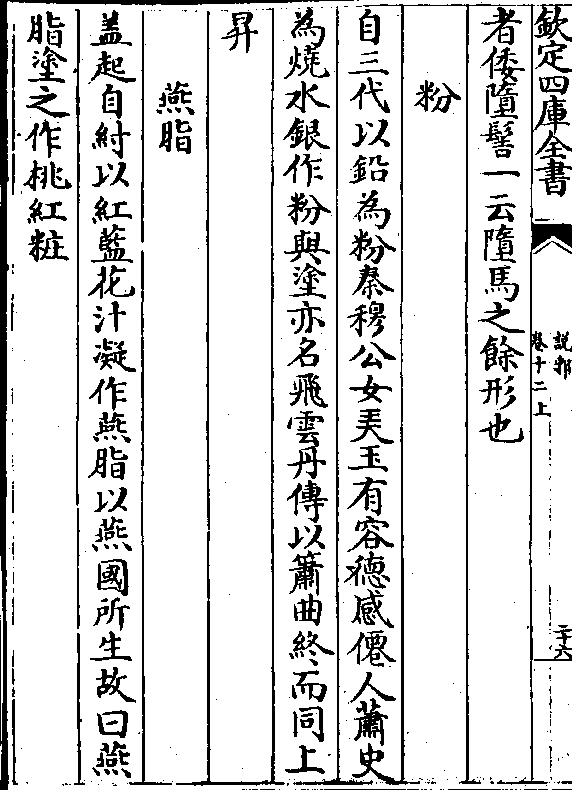 欽定四庫全書
說郛
卷十二上
二十六
者倭墮髻一云墮馬之餘形也
粉
自三代以鉛為粉秦穆公女美玉有容德感僊人蕭史
為燒水銀作粉與塗亦名飛雲丹傳以簫曲終而同上
昇
燕脂
盖起自紂以紅藍花汁凝作燕脂以燕國所生故曰燕
脂塗之作桃紅粧